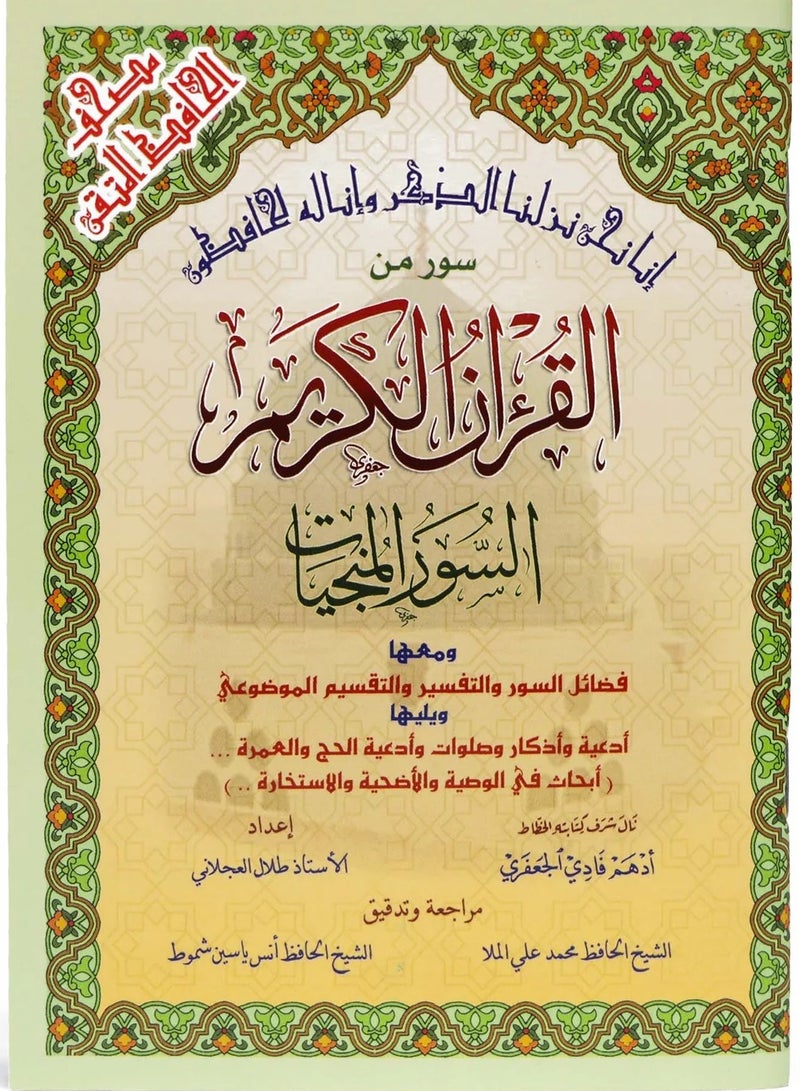 مصحف
الحافظ المتقن
إنا نحن نزلنا الذكر وإنا له لحافظون
سور من
القُرْءانُ الكَرِيم
جعفري
السُّوَرُ المُنجيَات
جعفري
ومعها
فضائل السور والتفسير والتقسيم الموضوعي
ويليها
أدعية وأذكار وصلوات وأدعية الحج والعمرة ...
( أبحاث في الوصية والأضحية والاستخارة .. )
نَالَ شَرَفَ كِتَابَتِهِ الخطّاط
أدهَمْ فَادِيْ الجَعفَرِيْ
إعداد
الأستاذ طلال العجلاني
مراجعة وتدقيق
الشيخ الحافظ محمد علي الملا
الشيخ الحافظ أنس ياسين شموط